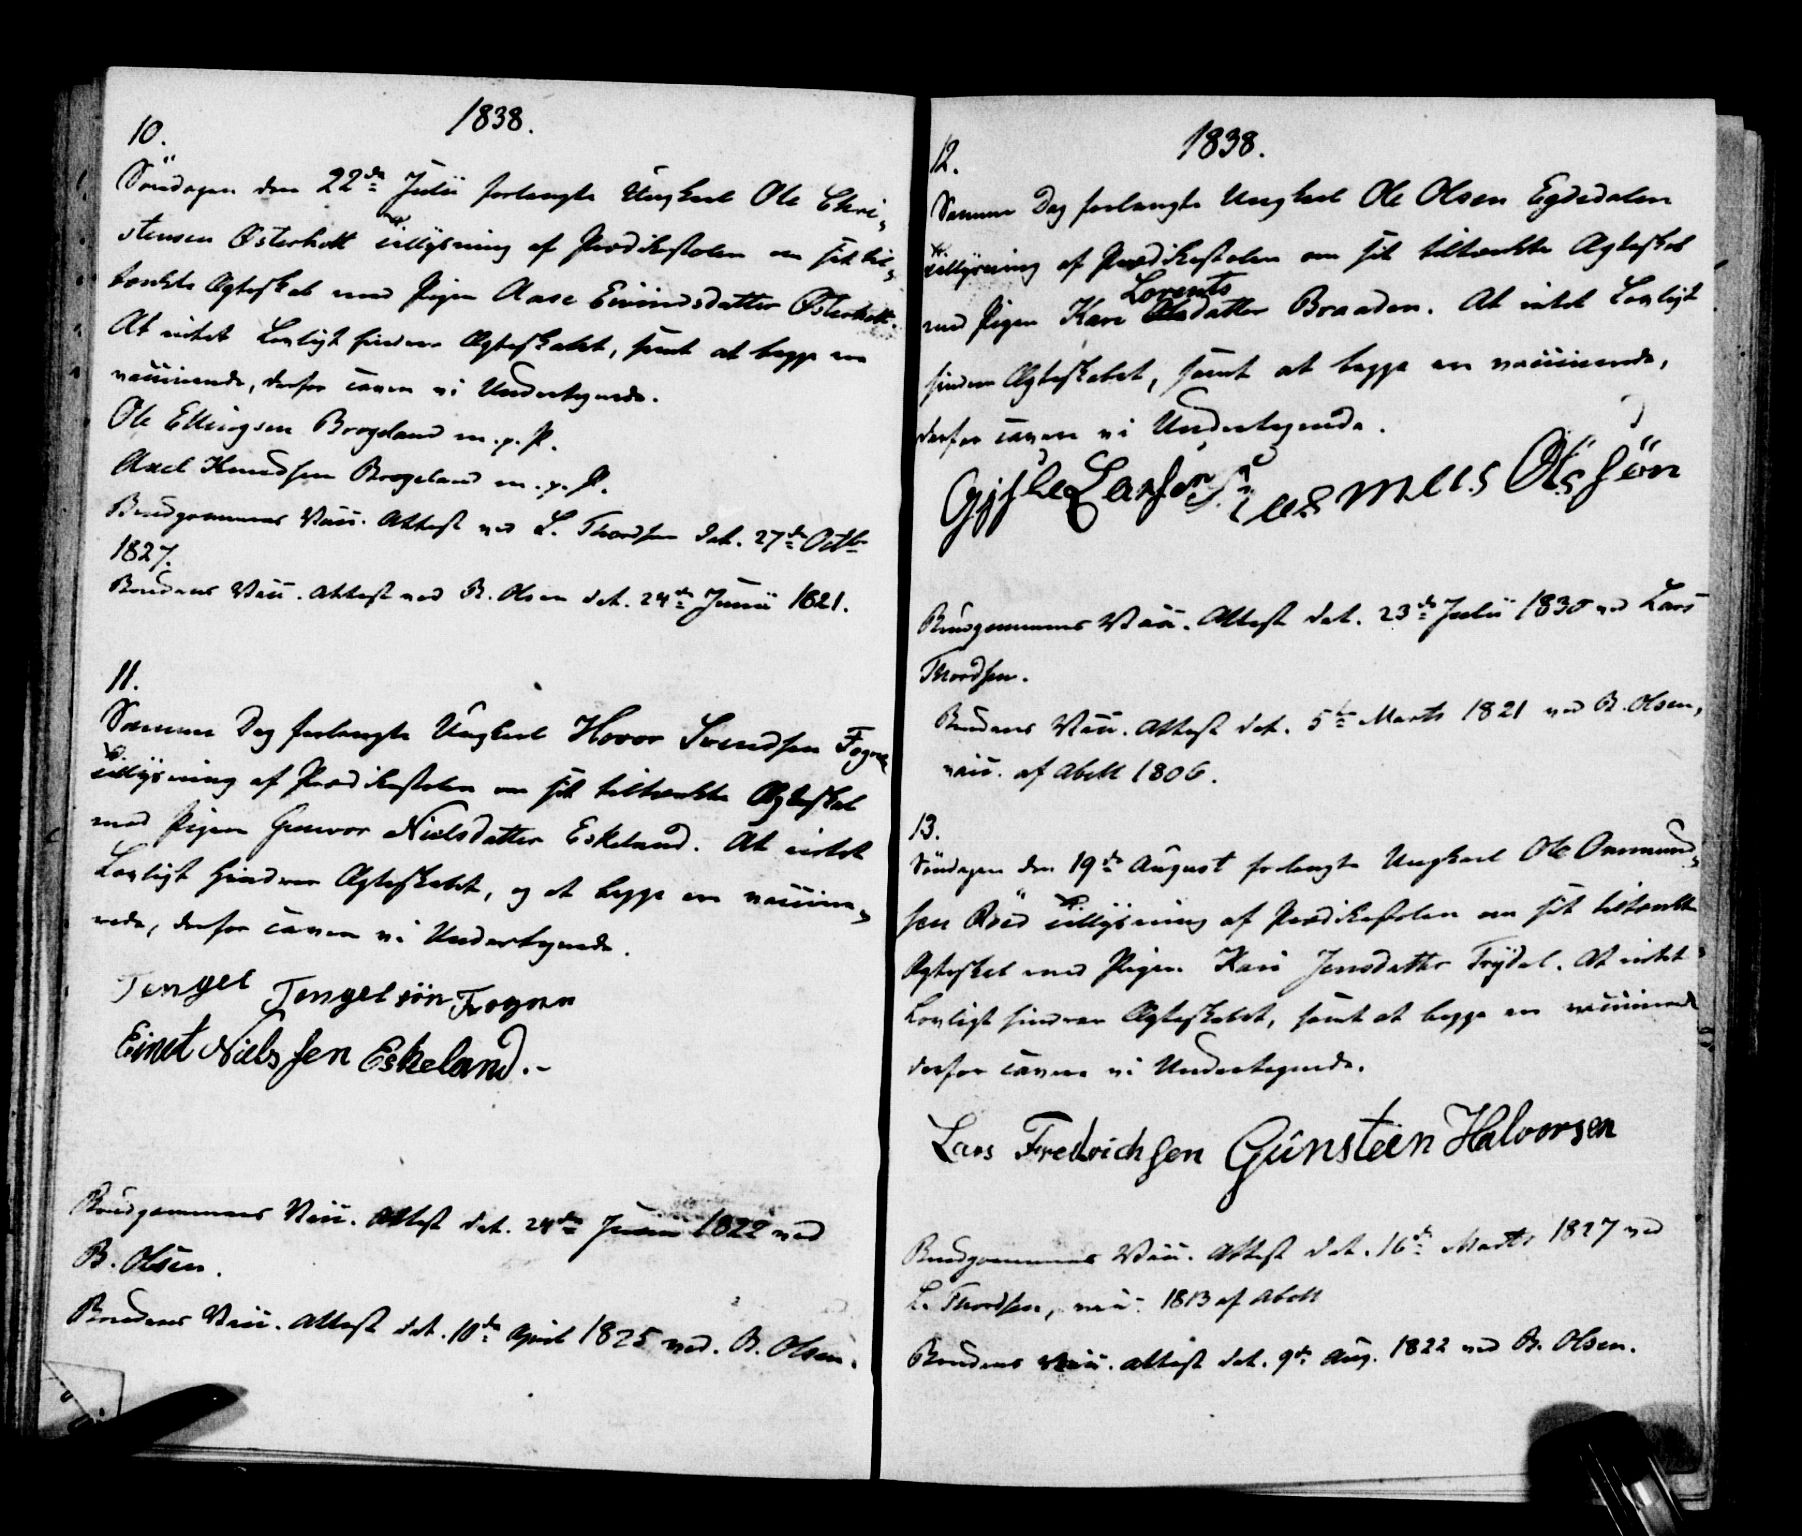 1838.
10.
Søndagen den 22de Julii forlangte Ungkarl Ole Chri-
stensen Østerholt Tillysning af Prædikestolen om sit til-
tænkte Ægteskab med Pigen Aase Eivindsdatter Østerholt.
At intet Lovligt hindrer Ægteskabet, samt at begge ere
vaccinerede, derfor cavere vi Undertegnede.
Ole Ellingsen Brogeland m. p. P.
Axel Knudsen Brogeland m. p. P.
Brudgommens Vacc. Attest ved L. Thordsen dat. 27de Octbr
1827.
Brudens Vacc. Attest ved B. Olsen dat. 24de Junii 1821.
11.
Samme Dag forlangte Ungkarl Hovor Svendsen Fogne
Tillysning af Prædikestolen om sit tiltænkte Ægteskab
med Pigen Gunvor Nielsdatter Eskeland. At intet
Lovligt hindrer Ægteskabet, og at begge ere vaccine-
rede, derfor cavere vi Undertegnede.
Tengel Tengelsön Fognn
Einet Nielssen Eskeland.-
Brudgommens Vacc. Attest dat. 24de Junii 1822 ved
B. Olsen.
Brudens Vacc. Attest dat. 10de April 1825 ved. B. Olsen.
1838.
12.
Samme Dag forlangte Ungkarl Ole Olsen Egdedalen
Tillysning af Prædikestolen om sit tiltænkte Ægteskab
med Pigen Kari Lorentsdatter Braaden. At intet Lovligt
hindrer Ægteskabet, samt at begge ere vaccinerede,
derfor cavere vi Undertegnede.
Gjsle Larsen Rasmus Olssön
Brudgommens Vacc. Attest dat. 23de Julii 1830 ved Lars
Thordsen.
Brudens Vacc. Attest dat. 5te Marts 1821 ved B. Olsen,
vacc. af Abell 1806.
13.
Søndagen den 19de August forlangte Ungkarl Ole Ommund-
sen Røed Tillysning af Prædikestolen om sit tiltænkte
Ægteskab med Pigen Kari Jensdatter Trydal. At intet
Lovligt hindrer Ægteskabet, samt at begge ere vaccinerede
derfor cavere vi Undertegnede.
Lars Fredrichsen Günsteen Halvorsen
Brudgommens Vacc. Attest dat. 16de Marts 1827 ved
L. Thordsen, vacc. 1813 af Abell
Brudens Vacc. Attest dat. 9de Aug. 1822 ved B. Olsen.